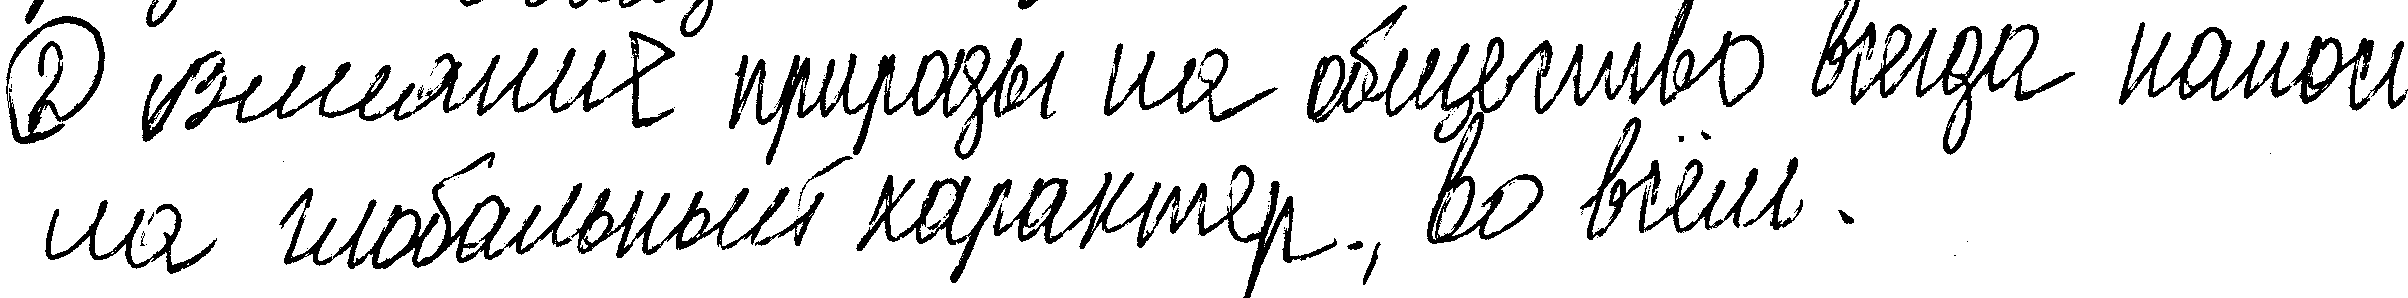 ② Влияние природы на общество всегда наноси
ла глобальный характер., во всём.